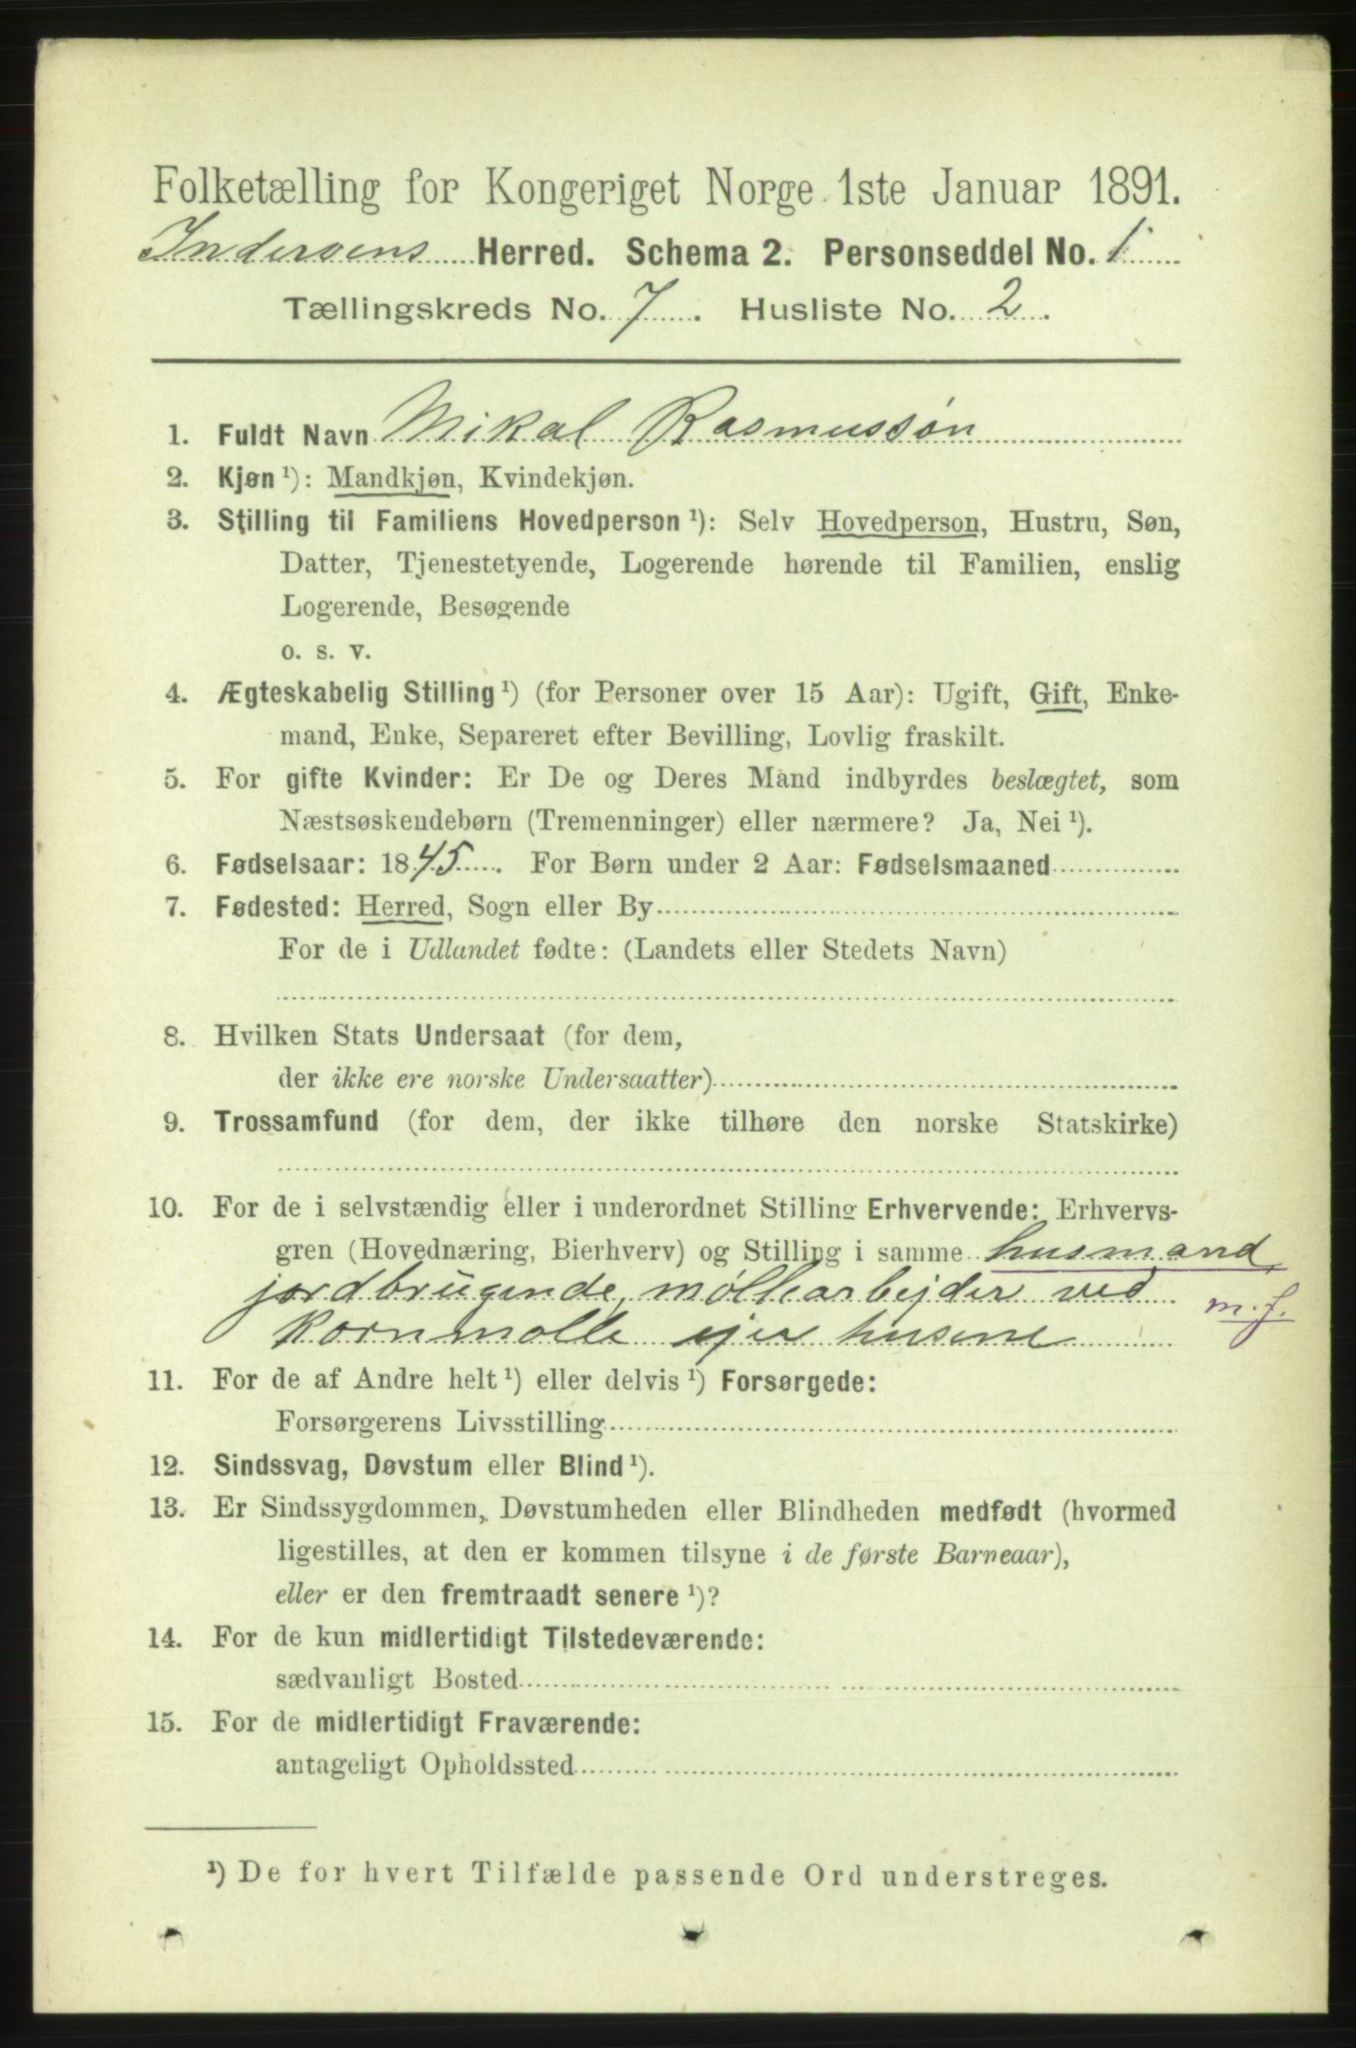 Folketælling for Kongeriget Norge 1ste Januar 1891.
Inderøens Herred. Schema 2. Personseddel No. 1
Tællingskreds No. 7. Husliste No. 2.
1. Fuldt Navn Mikal Rasmussøn
2. Kjøn ¹): Mandkjøn, Kvindekjøn.
3. Stilling til Familiens Hovedperson ¹): Selv Hovedperson, Hustru, Søn,
Datter, Tjenestetyende, Logerende hørende til Familien, enslig
Logerende, Besøgende
o. s. v.
4. Ægteskabelig Stilling ¹) (for Personer over 15 Aar): Ugift, Gift, Enke-
mand, Enke, Separeret efter Bevilling, Lovlig fraskilt.
5. For gifte Kvinder: Er De og Deres Mand indbyrdes beslægtet, som
Næstsøskendebørn (Tremenninger) eller nærmere? Ja, Nei ¹).
6. Fødselsaar: 1845. For Børn under 2 Aar: Fødselsmaaned
7. Fødested: Herred, Sogn eller By
For de i Udlandet fødte: (Landets eller Stedets Navn)
8. Hvilken Stats Undersaat (for dem,
der ikke ere norske Undersaatter)
9. Trossamfund (for dem, der ikke tilhøre den norske Statskirke)
10. For de i selvstændig eller i underordnet Stilling Erhvervende: Erhvervs-
gren (Hovednæring, Bierhverv) og Stilling i samme husmand
jordbrugende, møllearbejder ved
m. f.
Kornmølle ejer husene
11. For de af Andre helt ¹) eller delvis ¹) Forsørgede:
Forsørgerens Livsstilling
12. Sindssvag, Døvstum eller Blind ¹).
13. Er Sindssygdommen, Døvstumheden eller Blindheden medfødt (hvormed
ligestilles, at den er kommen tilsyne i de første Barneaar),
eller er den fremtraadt senere ¹)?
14. For de kun midlertidigt Tilstedeværende:
sædvanligt Bosted
15. For de midlertidigt Fraværende:
antageligt Opholdssted
¹) De for hvert Tilfælde passende Ord understreges.